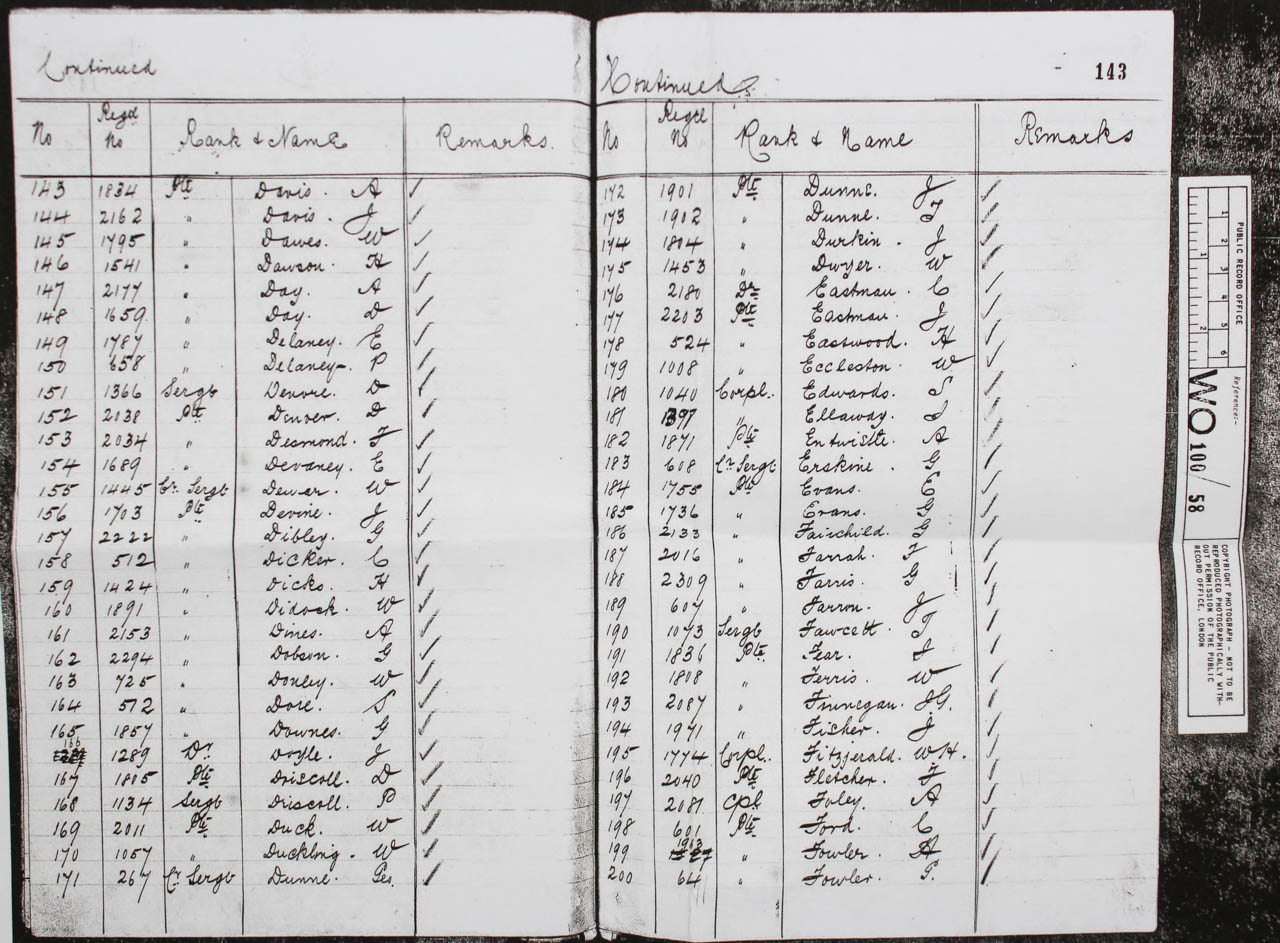 Continued
No Regtl No Rank & Name Remarks.
143 1834 Pte Davis. A ✓
144 2162 " Davis. J ✓
145 1795 " Dawes. W ✓
146 1541 " Dawson. H ✓
147 2177 " Day. A ✓
148 1659 " Day. D ✓
149 1787 " Delaney. E ✓
150 658 " Delaney. P ✓
151 1366 Sergt D ✓
152 2038 Pte Denver. D ✓
153 2034 " Desmond. T ✓
154 1689 " Devaney. E ✓
155 1445 Cr. Sergt Dewar. W ✓
156 1703 Pte Devine. J ✓
157 2222 " Dibley. G ✓
158 512 " Dicker. C ✓
159 1424 " Dicks. H ✓
160 1891 " Didock. W ✓
161 2153 " Dines. A ✓
162 2294 " Dobson. G ✓
163 725 " Donley. W ✓
164 572 " Dore. S ✓
165 1857 " Downes. G ✓
166 1289 Dr Doyle. J ✓
167 1805 Pte Driscoll. D ✓
168 1134 Sergt Driscoll. P ✓
169 2011 Pte Duck. W ✓
170 1057 " Duckling. W ✓
171 267 Cr Sergt Dunne. Geo. ✓
Continued
143
No Regtl No Rank & Name Remarks
172 1901 Pte Dunne. J ✓
173 1902 " Dunne. T ✓
174 1804 " Durkin. J ✓
175 1453 " Dwyer. W ✓
176 2180 Dr Eastman. C ✓
177 2203 Pte Eastman. J ✓
178 524 " Eastwood. H ✓
179 1008 " Eccleston. W ✓
180 1040 Corpl. Edwards. S ✓
181 1397 " Ellaway. S ✓
182 1871 Pte Entwistle. A ✓
183 608 Cr Sergt Erskine. G ✓
184 1755 Pte Evans. E ✓
185 1736 " Evans. G ✓
186 2133 " Fairchild. G ✓
187 2016 " Farrah. T ✓
188 2309 " Farris. G ✓
189 607 " Farron. J ✓
190 1073 Sergt Fawcett. T ✓
191 1836 Pte. Fear. J ✓
192 1808 " Ferris. W ✓
193 2087 " Finnegan. J.G. ✓
194 1971 " Fisher. J ✓
195 1774 Corpl. Fitzjerald. W.H. ✓
196 2040 Pte Fletcher. T ✓
197 2081 Cpl Foley. A ✓
198 601 Pte Ford. C ✓
199 1963 " Fowler. A ✓
200 64 " Fowler. G. ✓
PUBLIC RECORD OFFICE
1 2 3 4 5 6
1 2
Reference:-
WO 100/58
COPYRIGHT PHOTOGRAPH - NOT TO BE
REPRODUCED PHOTOGRAPHICALLY WITH-
OUT PERMISSION OF THE PUBLIC
RECORD OFFICE, LONDON